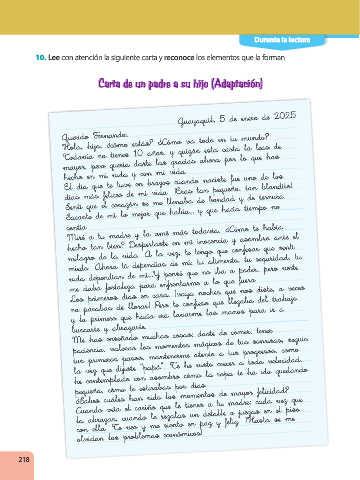 Durante la lectura
10. Lee con atención la siguiente carta y reconoce los elementos que la forman
Carta de un padre a su hijo (Adaptación)
Guayaquil, 5 de enero de 2025
Querido Fernando:
Hola, hijo, ¿cómo estás? ¿Cómo va todo en tu mundo?
Todavía no tienes 10 años, y quizás esta carta la leas de
mayor, pero quería darte las gracias ahora por lo que has
hecho en mi vida y con mi vida.
El día que te tuve en brazos cuando naciste fue uno de los
días más felices de mi vida. Eras tan pequeño, tan blandito!
Sentí que el corazón se me llenaba de bondad y de ternura.
Sacaste de mí lo mejor que había... y que hacía tiempo no
sentía.
Miré a tu madre y la amé más todavía. ¿Cómo te había
hecho tan bien? Despertaste en mí inocencia y asombro ante el
milagro de la vida. A la vez, tengo que confesar que sentí
miedo. Ahora tú dependías de mí: tu alimento, tu seguridad, tu
vida dependían de mí... Y pensé que no iba a poder, pero verte
me daba fortaleza para enfrentarme a lo que fuera.
Los primeros días en casa, ¡vaya noches que nos diste, a veces
no parabas de llorar! Pero te confieso que llegaba del trabajo
y lo primero que hacía era lavarme las manos para ir a
buscarte y abrazarte.
Me has enseñado muchas cosas: darte de comer, tener
paciencia, valorar los momentos mágicos de tus sonrisas, seguir
tus primeros pasos, mantenerme atento a tus progresos, como
la vez que dijiste "papá". Te he visto crecer a toda velocidad,
he contemplado con asombro cómo la ropa te ha ido quedando
pequeña, cómo te estirabas por días.
¿Sabes cuáles han sido los momentos de mayor felicidad?
Cuando veía el cariño que le tienes a tu madre: cada vez que
la abrazas, cuando le regalas un detalle o juegas en el piso
con ella. Te veo y me siento en paz y feliz. ¡Hasta se me
olvidan los problemas económicos!
218